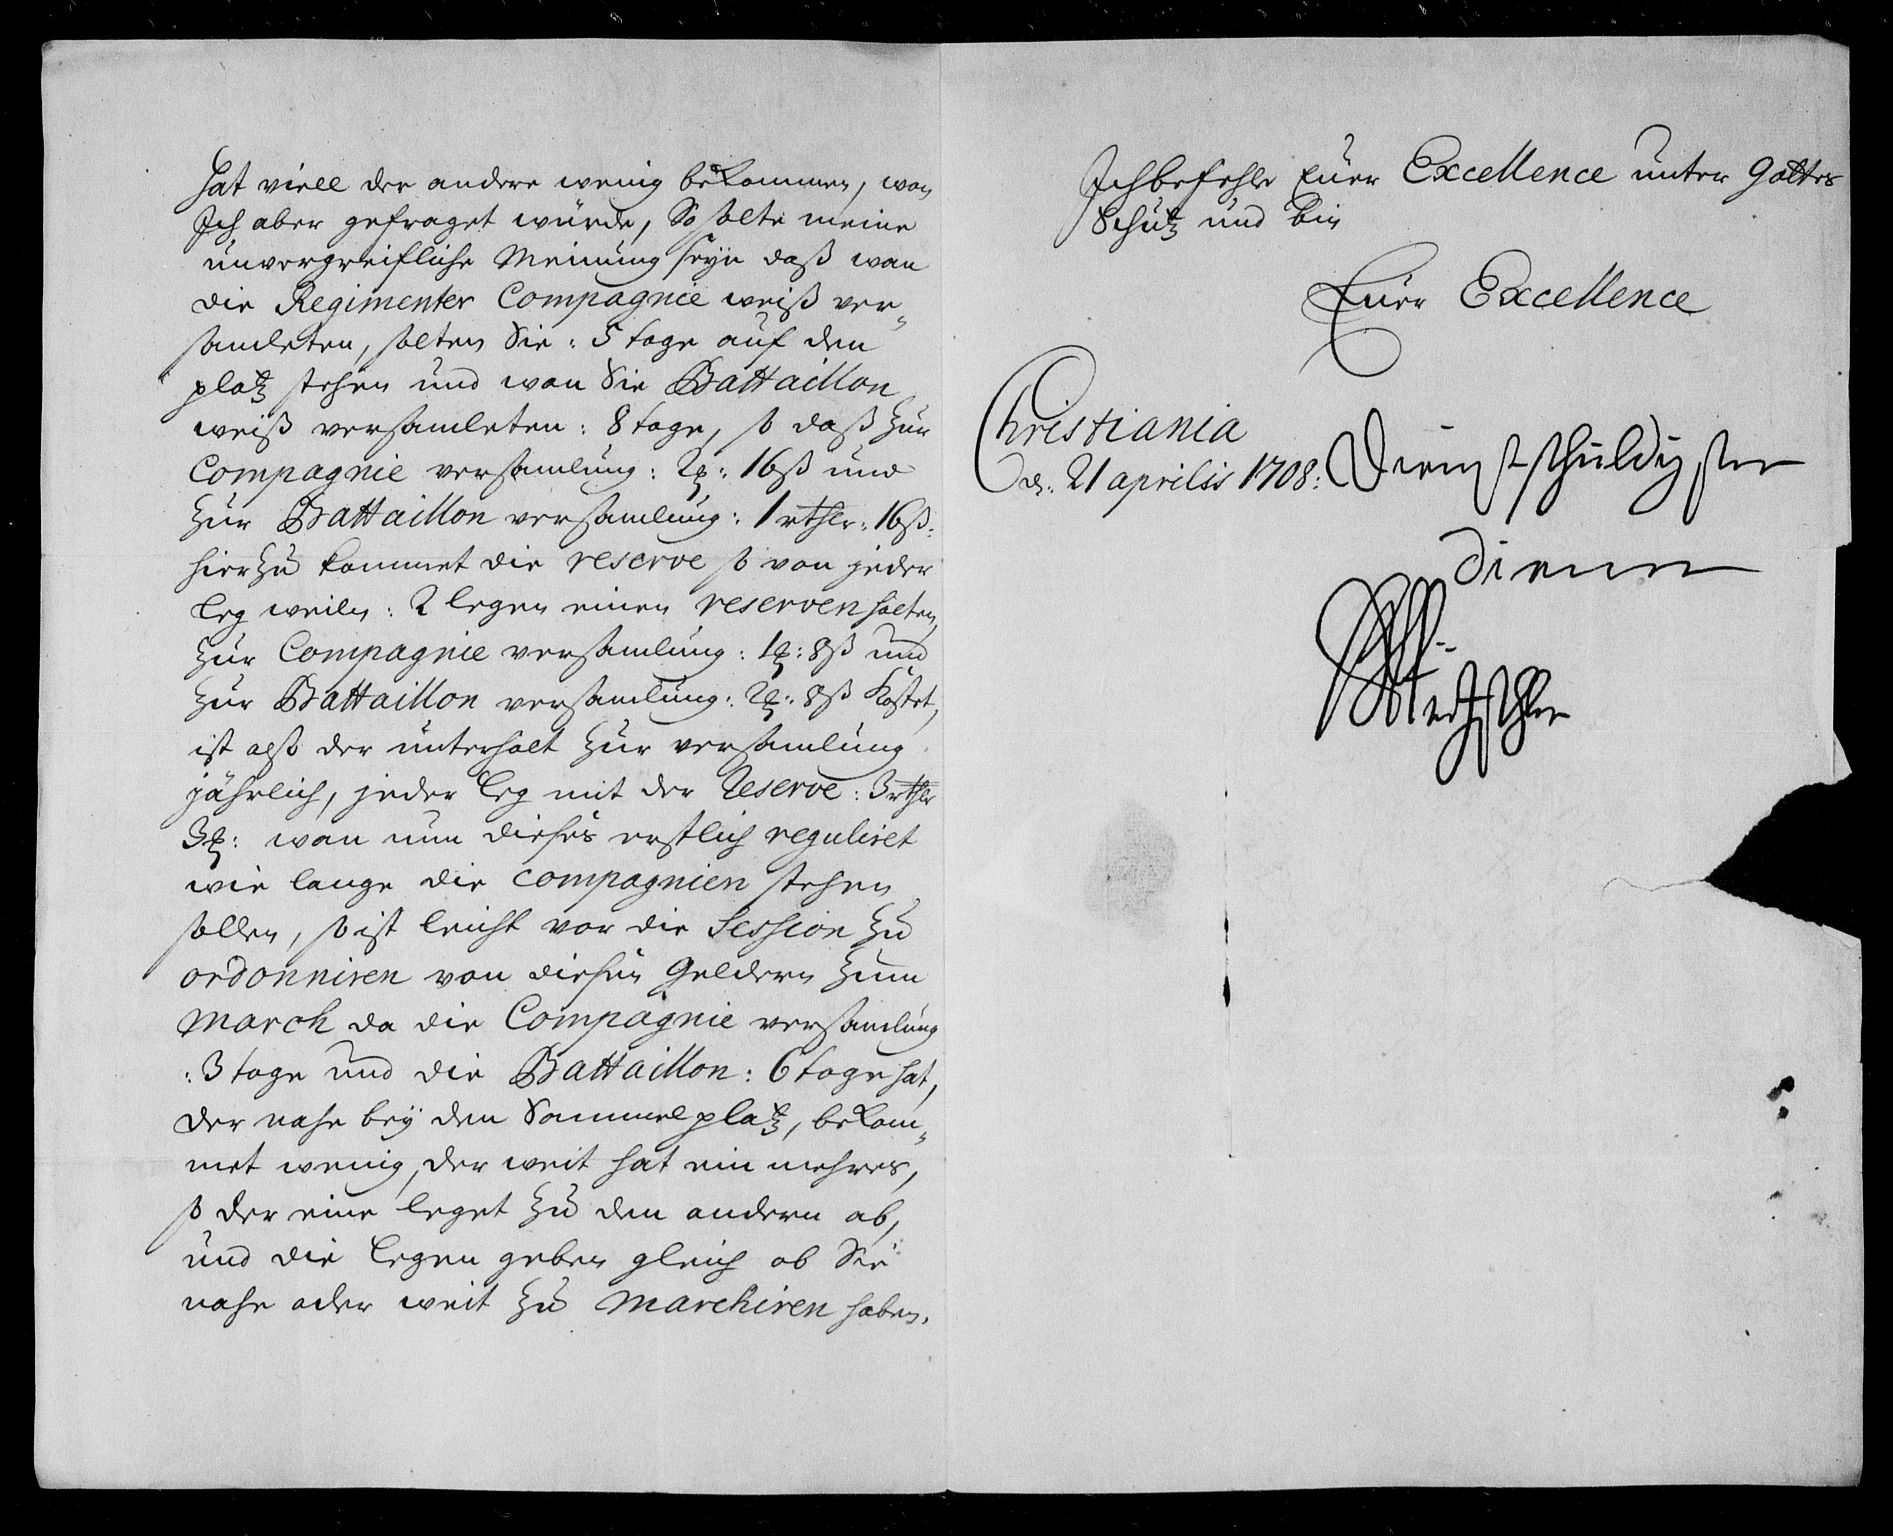 hat viell der andere wenig bekommen, wan
Ich aber gefraget würde, So solte meine
unvorgreifliche Meinung seyn daß wan
die Regimenter Compagnie weiß ver„
samleten, solten Sie: 5 tage auf den
platz stehen und wan Sie Battaillon
weiß versamleten: 8 tage, so daß zur
Compagnie versamlung: 2 : 16ß und
zur Battaillon versamlung: 1 rthlr: 16ß:
hierzu kommet die reserve so von jeder
leg weiln: 2 legen einen reserven halten,
zur Compagnie versamlung: 1 : 8ß und
zur Battaillon versamlung: 2 : 8ß kostet,
ist alß der unterhalt zur versamlung
jährlich, jeder leg mit der Reserve: 3 rthlr
3 : wan nun dieses erstlich reguliret
wie lange die compagnien stehen
sollen, so ist leicht vor die Session zu
ordonniren von diesen Geldern zum
March da die Compagnie versamlung
: 3 tage und die Battaillon: 6 tage hat,
der nahe bey den Sammelplatz, bekom„
met wenig, der weit hat ein mehres,
so der eine leget zu den andern ab,
und die legen geben gleich ob Sie
nahe oder weit zu Marchiren haben.
Ich befehle Euer Excellence unter Gottes
Schutz und bin
Euer Excellence
Christiania
d. 21 aprilis 1708:
Dienstschuldigster
diener